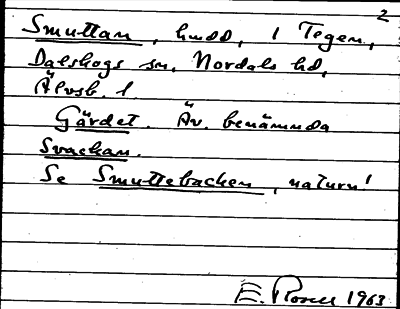 2
Smuttan, hmdd, i Tegen,
Dalskogs sn, Nordals hd,
Älvsb. l.
Gärdet. Äv. benämnda
Svackan.
Se Smuttebacken, naturn!
E. 1963